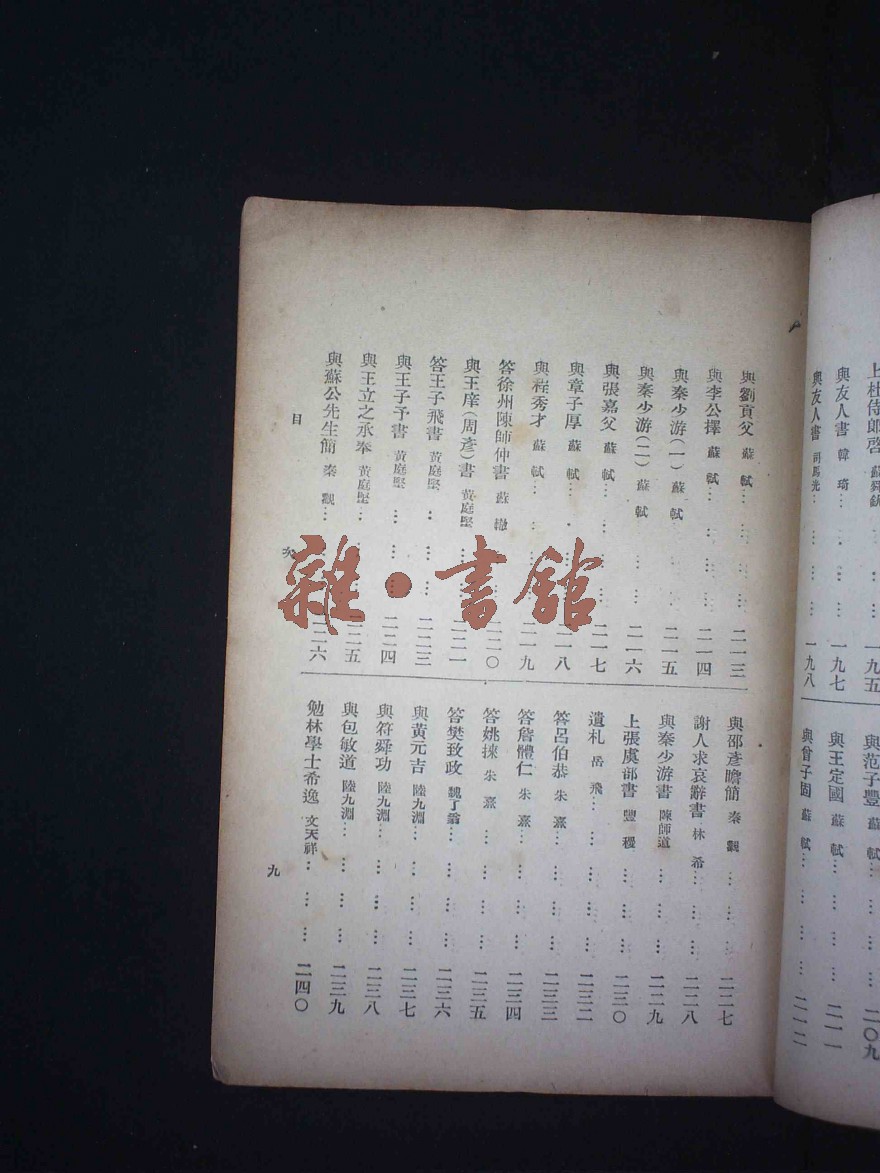 上杜侍郎啓 蘇舜欽 一九五
與友人書 韓琦 一九七
與友人書 司馬光 一九八
與范子豐 蘇軾 二〇九
與王定國 蘇軾 二一一
與曾子固 蘇軾 二一二
與劉貢父 蘇軾 二一三
與李公擇 蘇軾 二一四
與秦少游(一) 蘇軾 二一五
與秦少游(二) 蘇軾 二一六
與張嘉父 蘇軾 二一七
與章子厚 蘇軾 二一八
與程秀才 蘇軾 二一九
答徐州陳師仲書 蘇轍 二二〇
與王庠(周彥)書 黃庭堅 二二一
答王子飛書 黃庭堅 二二三
與王子予書 黃庭堅 二二四
與王立之承奉 黃庭堅 二二五
與蘇公先生簡 秦觀 二二六
與邵彥瞻簡 秦觀 二二七
謝人求哀辭書 林希 二二八
與秦少游書 陳師道 二二九
上張虞部書 豐稷 二三〇
遺札 岳飛 二三二
答呂伯恭 朱熹 二三三
答詹體仁 朱熹 二三四
答姚揀 朱熹 二三五
答樊致政 魏了翁 二三六
與黃元吉 陸九淵 二三七
與符舜功 陸九淵 二三八
與包敏道 陸九淵 二三九
勉林學士希逸 文天祥 二四〇
目次
九
雜·書館